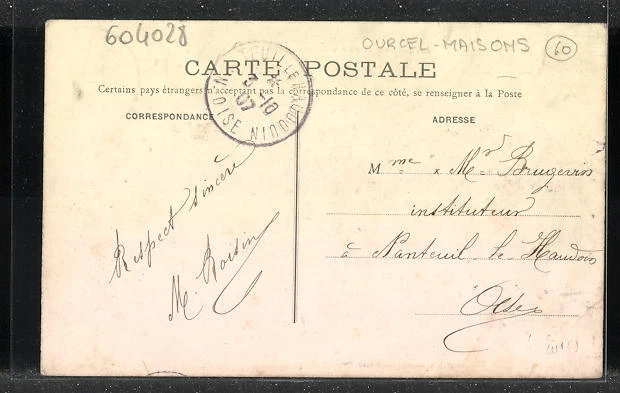 604028
OURCEL-MAISONS
60
CARTE POSTALE
Certains pays étrangers n'acceptant pas la correspondance de ce côté, se renseigner à la Poste
CORRESPONDANCE
ADRESSE
NANTEUIL LE HAUDOUIN
3-10
07
OISE
Mme x Mr Brugevin
instituteur
à Nanteuil le Haudoin
Oise
Respect sincère
M. Roisin